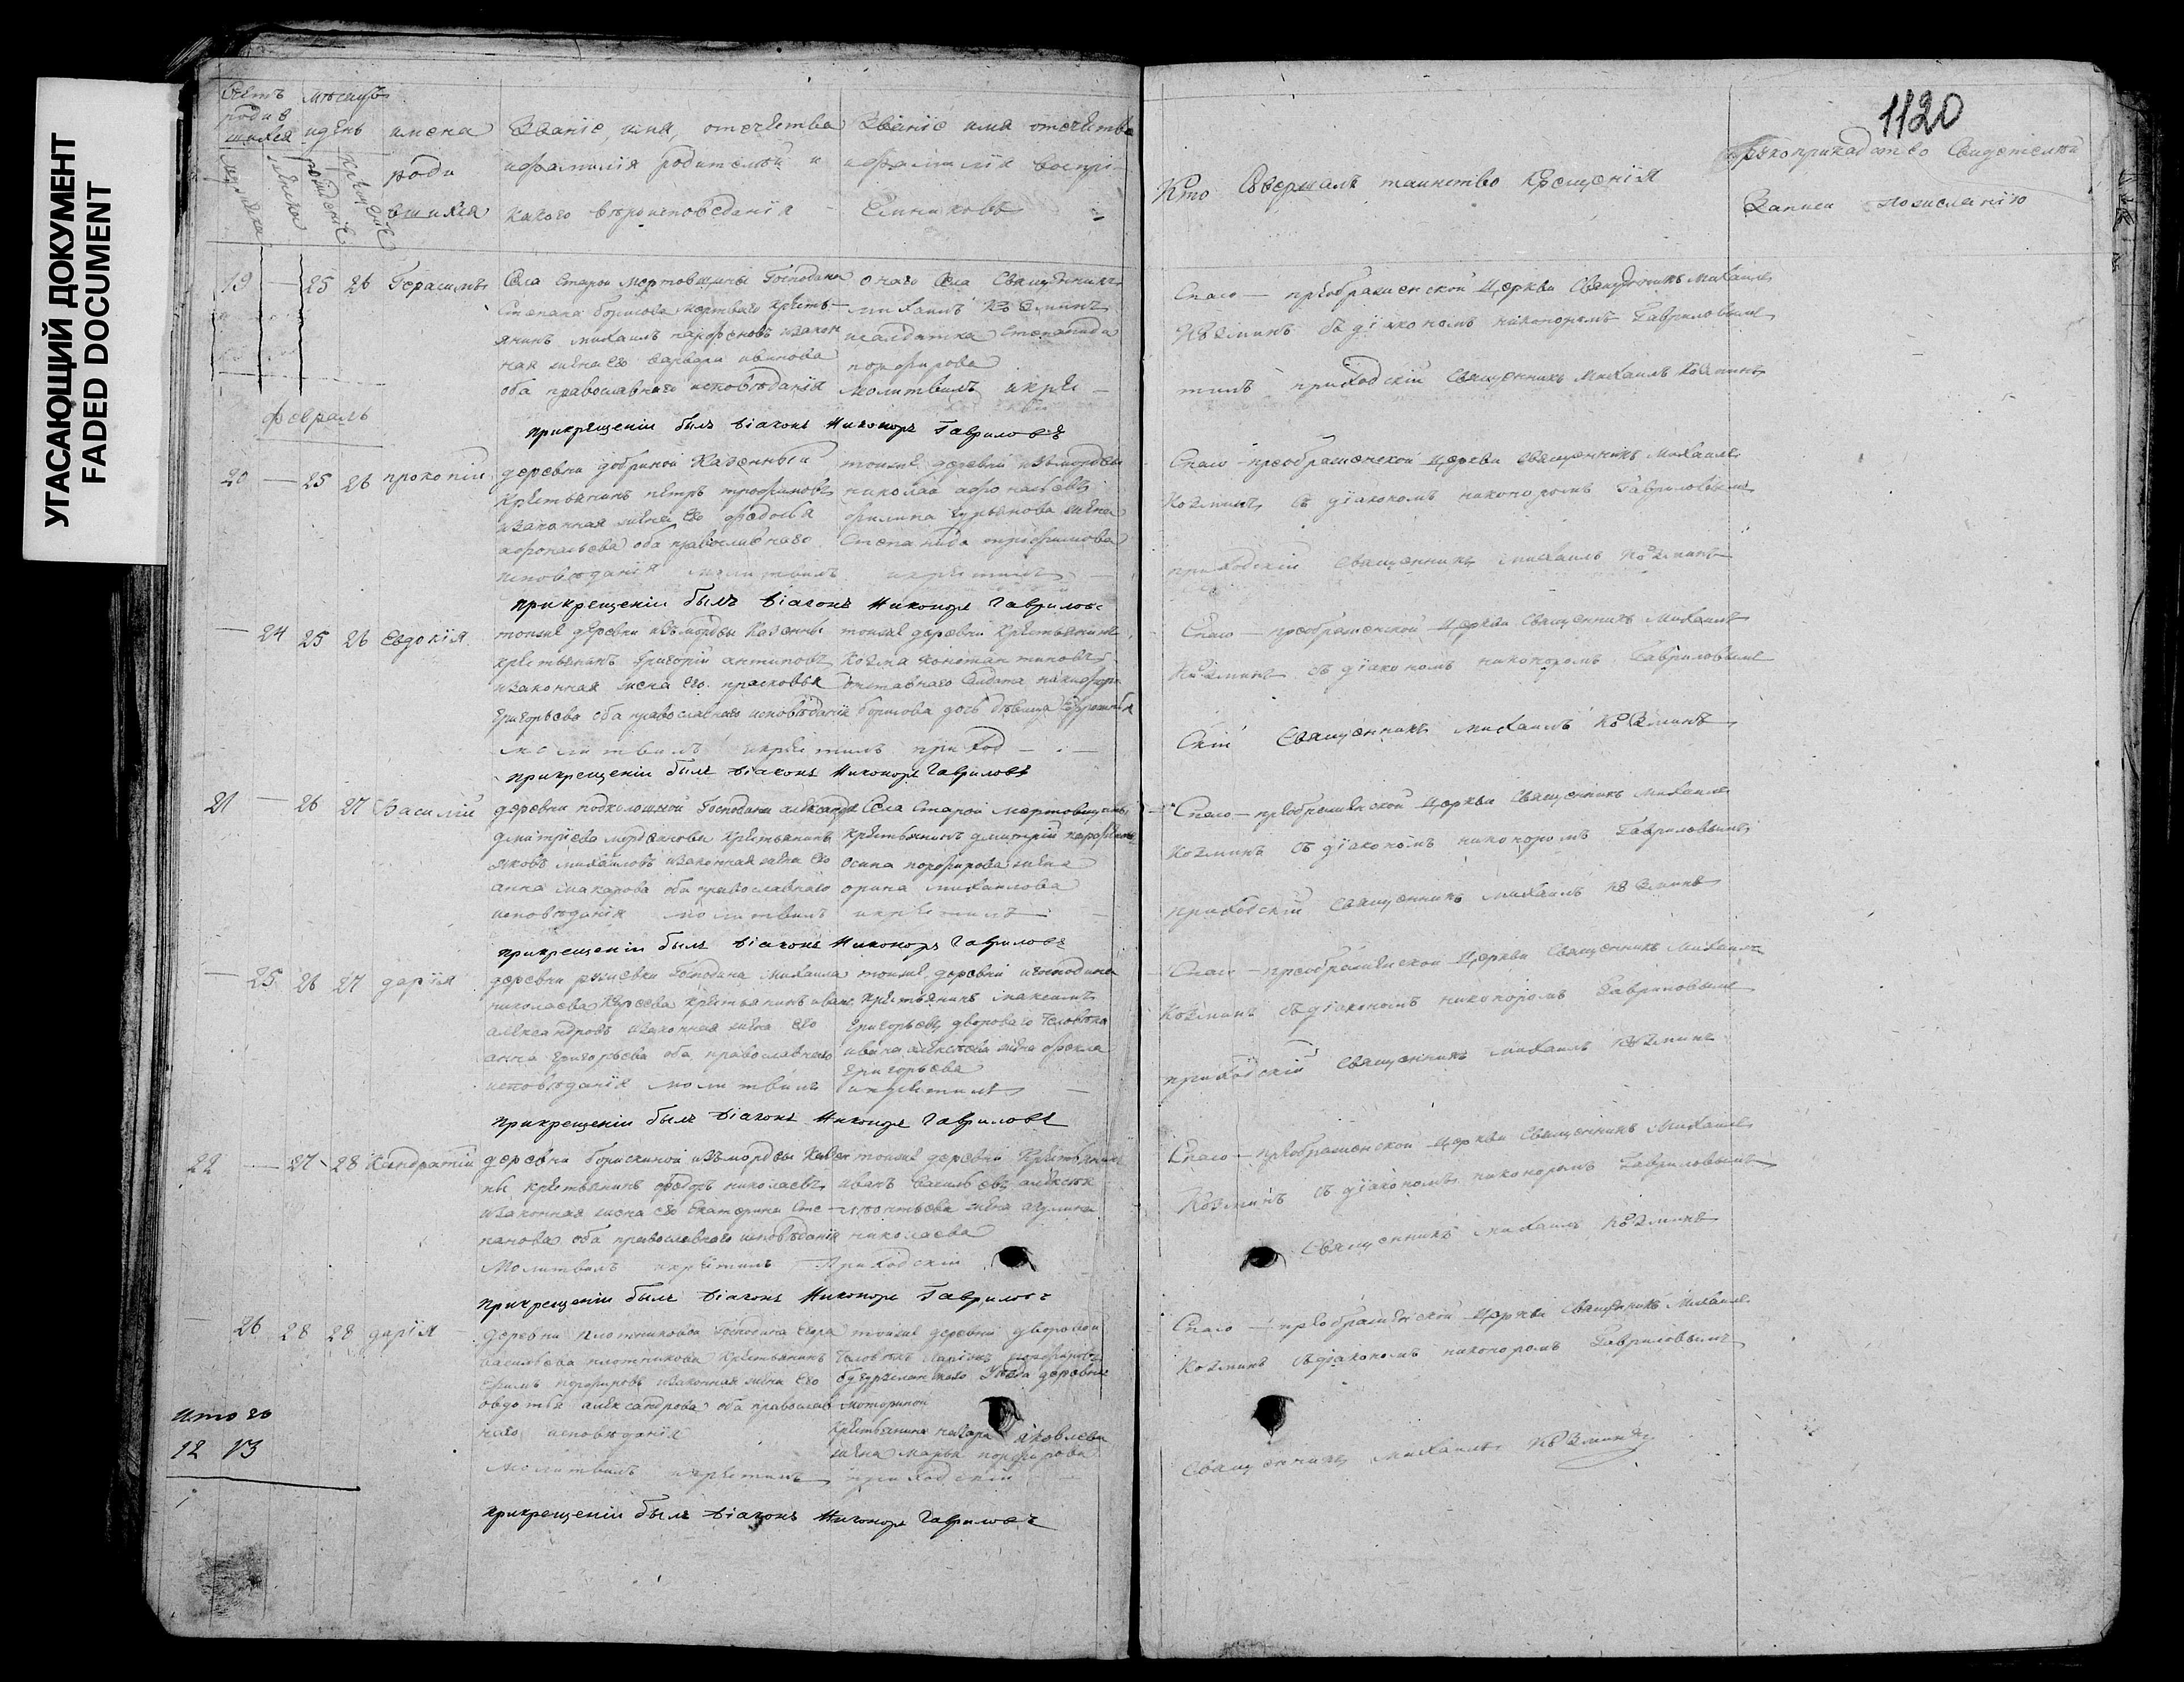 УГАСАЮЩИЙ ДОКУМЕНТ
FADED DOCUMENT
1120
Счетъ
родив
шихся
мѣсицъ
идень
имена
роди
вшихся
Званіе, имя, отечества
ифамилія родителей и
какого вѣроисповеданія
Званіе имя отечства
ифамилія воспрі
емниковъ
Кто Совершалъ таинство крещенія
рукоприкладство Свидетелей
Записи
19 — 25 26 Герасимъ
Села Старой мертовщины Господина
Степана борисова мертваго крестъ
янинъ михаилъ парфеновъ изакон
ная жена его варвара иванова
оба православнаго исповѣданія
онаго Села Священникъ
михаилъ Козминъ
исалдатка Степанида
порфирова
молитвилъ икрес
Спасо — преображенской Церкви Священникъ Михаилъ
Козминъ съ діакономъ никоноромъ Гавриловымъ
тилъ приходскій Священникъ Михаилъ Козминъ
прикрещеніи былъ діаконъ Никоноръ Гавриловъ
февраль
20 — 25 26 прокопій
деревни добриной Казенный
крестьянинъ петръ трофимовъ
изаконная жена его федосья
афонасьева оба православнаго
исповѣданія молитвилъ икрестилъ
тоижъ деревни изъмордвы
николай афонасьевъ
филипа гурьянова жена
Степанида трофимова
Спасо — преображенской Церкви Священникъ Михаилъ
Козминъ съ діакономъ никоноромъ Гавриловымъ
приходскій Священникъ михаилъ Козминъ
прикрещеніи былъ діаконъ Никоноръ Гавриловъ
— 24 25 26 Евдокія
тоижъ деревни изъмордвы Казенны
крестьянинъ Григорій антиповъ
изаконная жена его прасковья
Григорьева оба православнаго исповѣданія
молитвилъ икрестилъ приход
тоижъ деревни Крестьянинъ
Козма Константиновъ
отставнаго Салдата никифора
борисова дочь дѣвица
Спасо — преображенской Церкви Священникъ Михаилъ
Козминъ съ діакономъ никоноромъ Гавриловымъ
скій Священникъ михаилъ Козминъ
прикрещеніи былъ діаконъ Никоноръ Гавриловъ
21 — 26 27 Василій
деревни подколошной Господина александра
дмитріева мордвинова Крестьянинъ
яковъ михайловъ изаконная жена его
анна макарова оба православнаго
исповѣданія молитвилъ икрестилъ
Села Старой мертовщины
крестьянинъ дмитрій парфеновъ
осипа порфирова жена
орина михаилова
Спасо — преображенской Церкви Священникъ Михаилъ
Козминъ съ діакономъ никоноромъ Гавриловымъ
приходскій Священникъ михаилъ Козминъ
прикрещеніи былъ діаконъ Никоноръ Гавриловъ
— 25 26 27 дарія
деревни Господина Михаила
николаева Крестьянинъ иванъ
александровъ изаконная жена его
анна григорьева оба православнаго
исповѣданія молитвилъ
тоижъ деревни игосподина
Крестьянинъ максимъ
Григорьевъ двороваго человѣка
ивана алексѣева жена фекла
Григорьева
икрестилъ
Спасо — преображенской Церкви Священникъ Михаилъ
Козминъ съдіакономъ никоноромъ Гавриловымъ
приходскій Священникъ михаилъ Козминъ
прикрещеніи былъ діаконъ Никоноръ Гавриловъ
22 — 27 28 Кандратій
деревни борискиной изъмордвы Казен
ны Крестьянинъ федоръ николаевъ
изаконная жена его Екатерина Сте
панова оба православнаго исповѣданія
Молитвилъ икрестилъ Приходскій
тоижъ деревни Крестьянинъ
иванъ Васильевъ алексѣя
леонтьева жена акулина
николаева
Спасо — преображенской Церкви Священникъ Михаилъ
Козминъ съ діакономъ никоноромъ Гавриловымъ
Священникъ михаилъ Козминъ
прикрещеніи былъ діаконъ Никоноръ Гавриловъ
— 26 28 28 дарія
деревни плотниковой Господина Егора
Васильева плотникова Крестьянинъ
ефимъ порфировъ изаконная жена его
овдотья александрова оба православ
наго исповѣданія
молитвилъ икрестилъ приходскій
тоижъ деревни дворовой
человѣкъ ларіонъ порфировъ
бугурусланскаго Уѣзда деревни
моториной
Крестьянина захара яковлева
жена марья порфирова
Спасо — преображенской Церкви Священникъ Михаилъ
Козминъ съдіакономъ никоноромъ Гавриловымъ
Священникъ михаилъ Козминъ
прикрещеніи былъ діаконъ Никоноръ Гавриловъ
итого
12 13